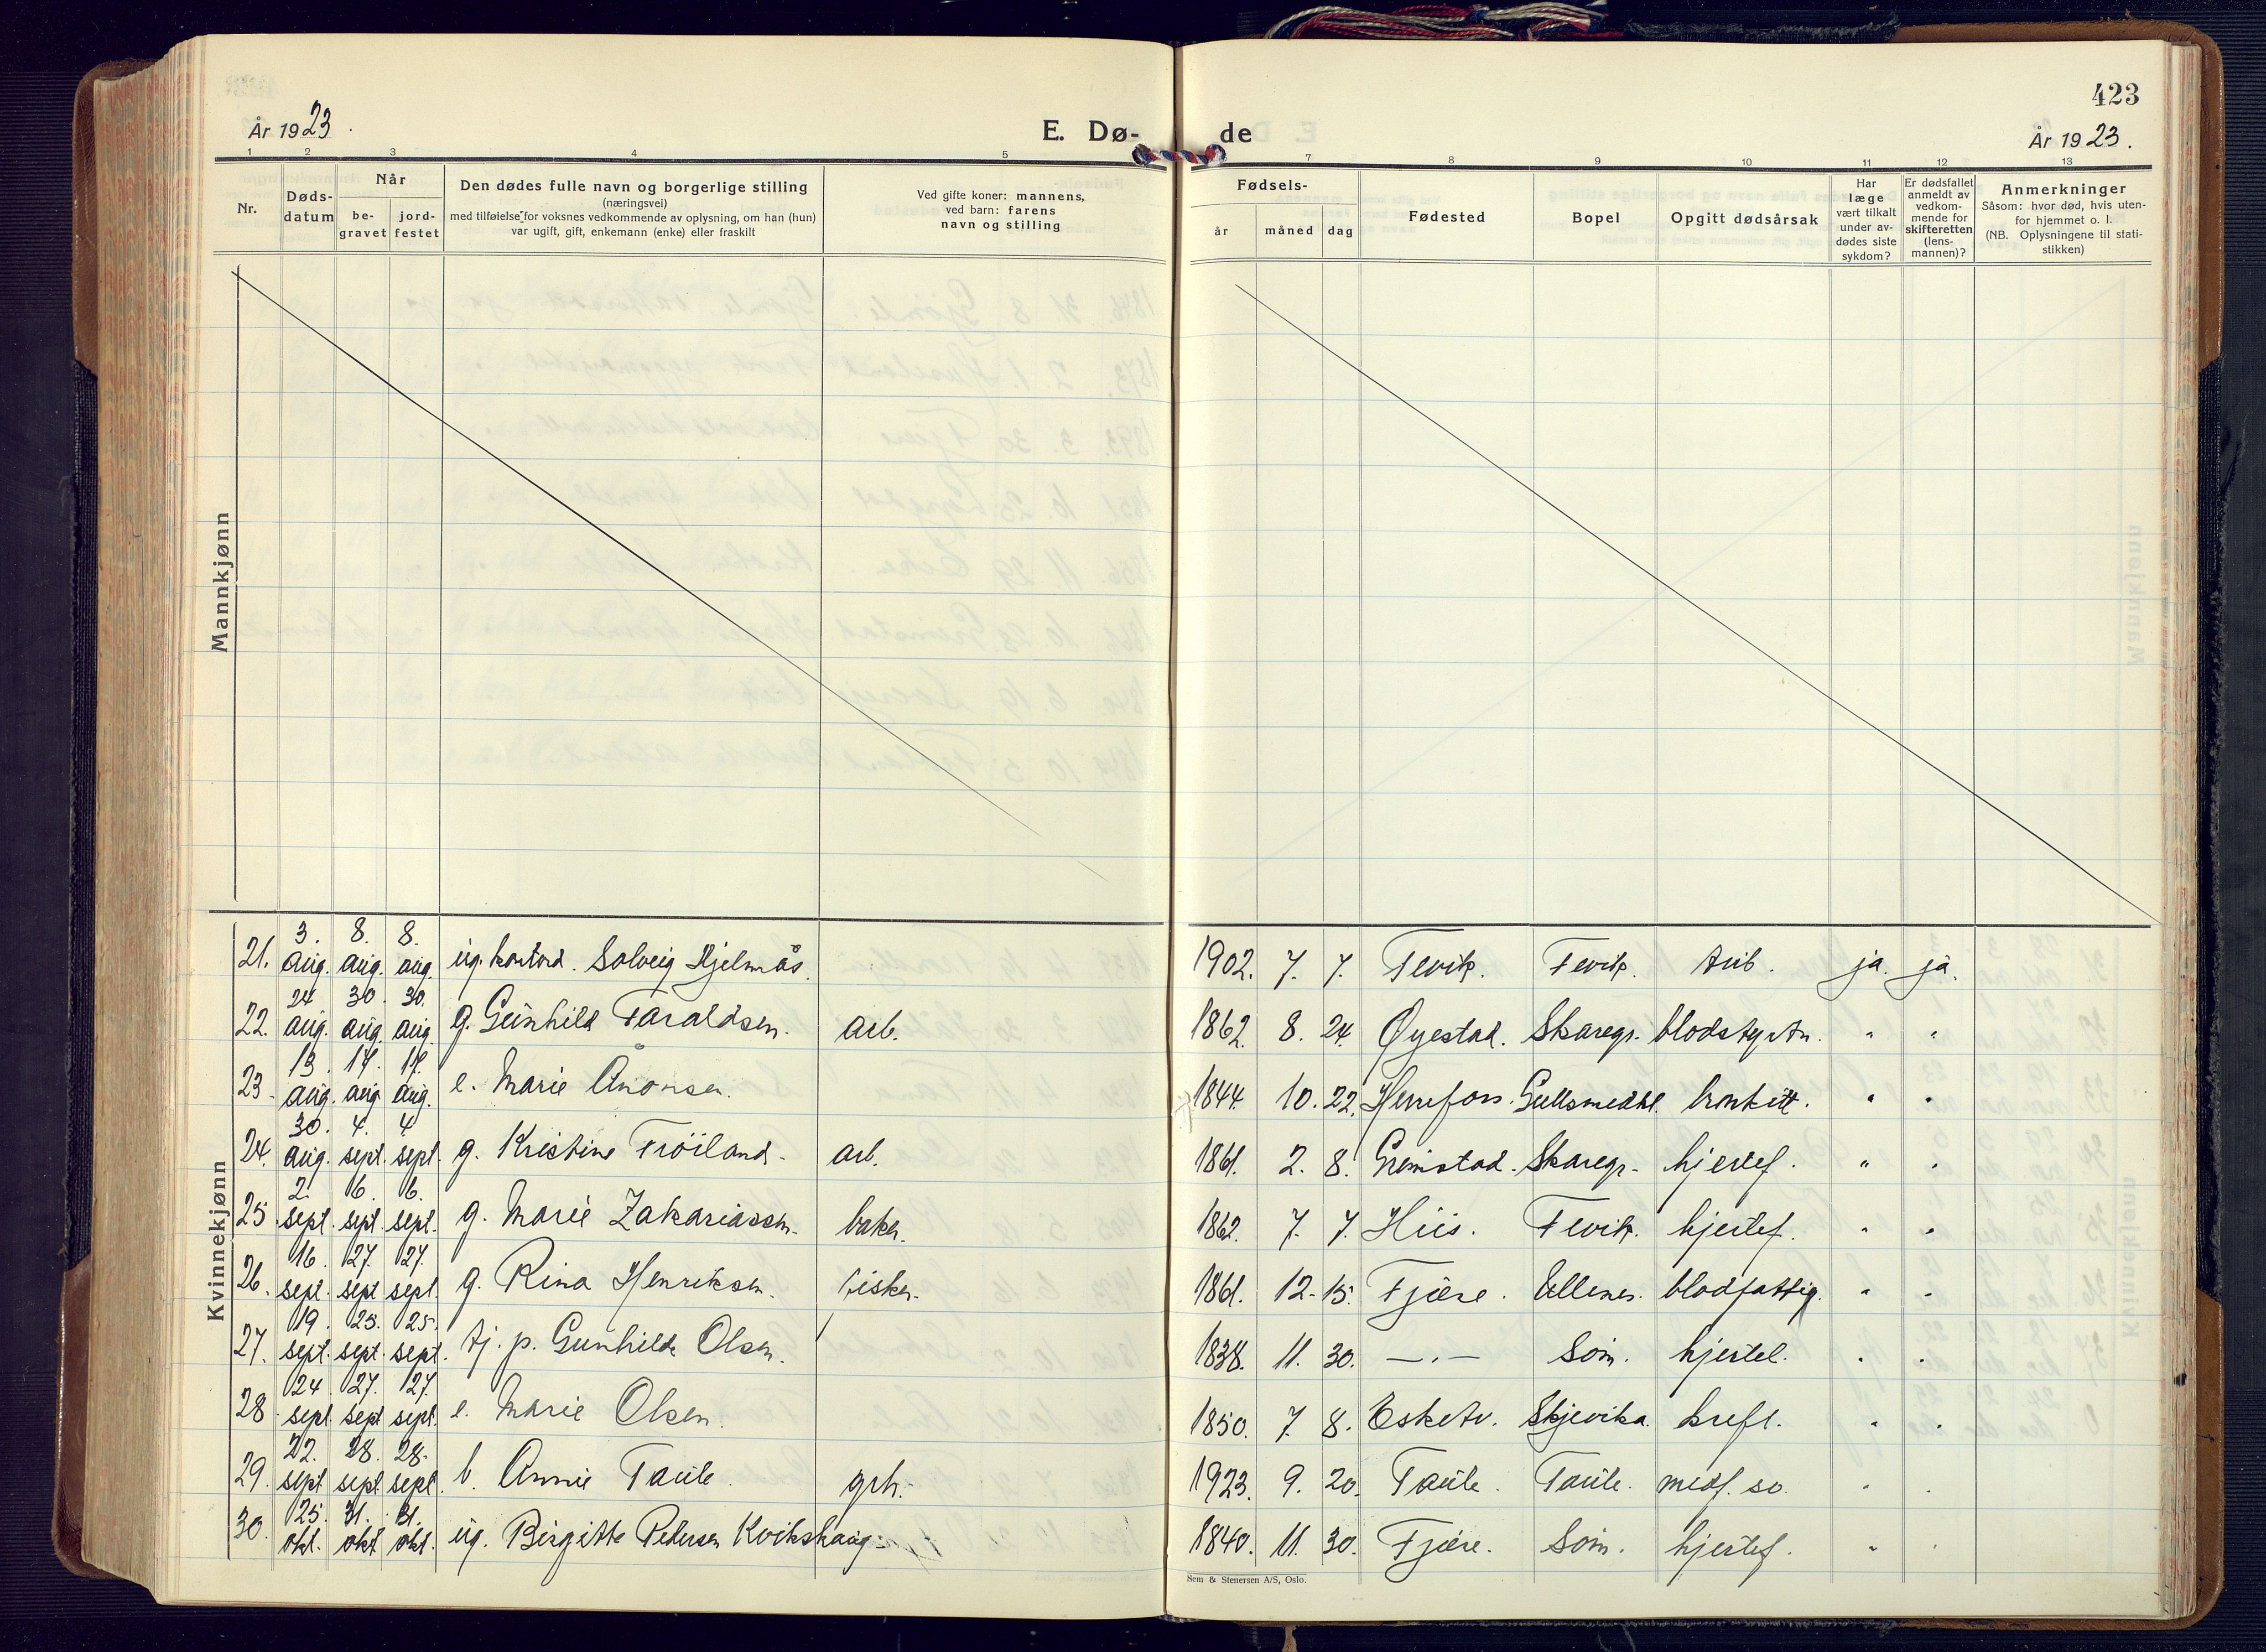 423
År 1923.
E. Dø-
de
År 1923.
1 2 3 4 5 7 8 9 10 11 12 13
Nr.
Døds-
datum
Når
be-
gravet
jord-
festet
Den dødes fulle navn og borgerlige stilling
(næringsvei)
med tilføielse for voksnes vedkommende av oplysning, om han (hun)
var ugift, gift, enkemann (enke) eller fraskilt
Ved gifte koner: mannens,
ved barn: farens
navn og stilling
Fødsels-
år måned dag
Fødested
Bopel
Opgitt dødsårsak
Har
læge
vært tilkalt
under av-
dødes siste
sykdom?
Er dødsfallet
anmeldt av
vedkom-
mende for
skifteretten
(lens-
mannen)?
Anmerkninger
Såsom: hvor død, hvis uten-
for hjemmet o. l.
(NB. Oplysningene til stati-
stikken)
Mannkjønn
Kvinnekjønn
21. 3. aug. 8. aug. 8. aug. ug. Solveig Hjelmås. 1902. 7. 7. Fevik. Fevik. ja. ja.
22. 24 aug. 30. aug. 30. aug. g. Gunhild Taraldsen. arb. 1862. 8. 24. Øyestad. Skaregr. blodstyrtn. " "
23. 13. aug. 17. aug. 17. aug. e. Marie Ånonsen. 1844. 10. 22. Herefoss. Gullsmedhl. bronkitt. " "
24. 30. aug. 4. sept. 4 sept. g. Kristine Frøiland. arb. 1861. 2. 8. Grimstad. Skaregr. hjertef. " "
25. 2. sept. 6. sept. 6. sept. g. Marie Zakariassen. baker. 1862. 7. 7. Hiis. Fevik. hjertef. " "
26. 16. sept. 27. sept 27. sept. g. Rina Henriksen. fisker. 1861. 12. 15. Fjære. Ullenes. blodfattig. " "
27. 19. sept. 25. sept. 25. sept. tj. p. Gunhilde Olsen. 1838. 11. 30. —„— Søm. hjertel. " "
28. 24 sept. 27. sept 27. sept. e. Marie Olsen. 1850. 7. 8. Esketv. Skjevika. kreft. " "
29. 22. sept. 28. sept 28. sept. b. Annie Taule. grh. 1923. 9. 20. Taule. Taule. medf. sv. " "
30. 25. okt. 31. okt 31. okt. ug. Birgitte Pedersen Kvikshaug. 1840. 11. 30. Fjære. Søm. hjertef. " "
Sem & Stenersen A/S, Oslo.